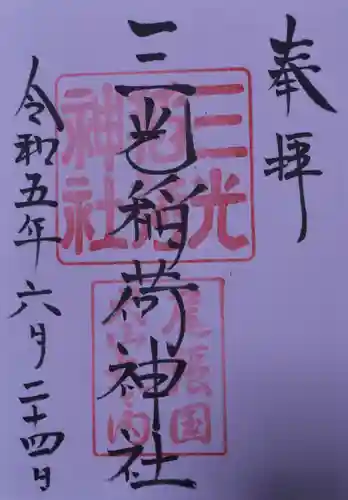 奉拝
三光稲荷神社
令和五年六月二十四日
三光稲荷神社
尾張国